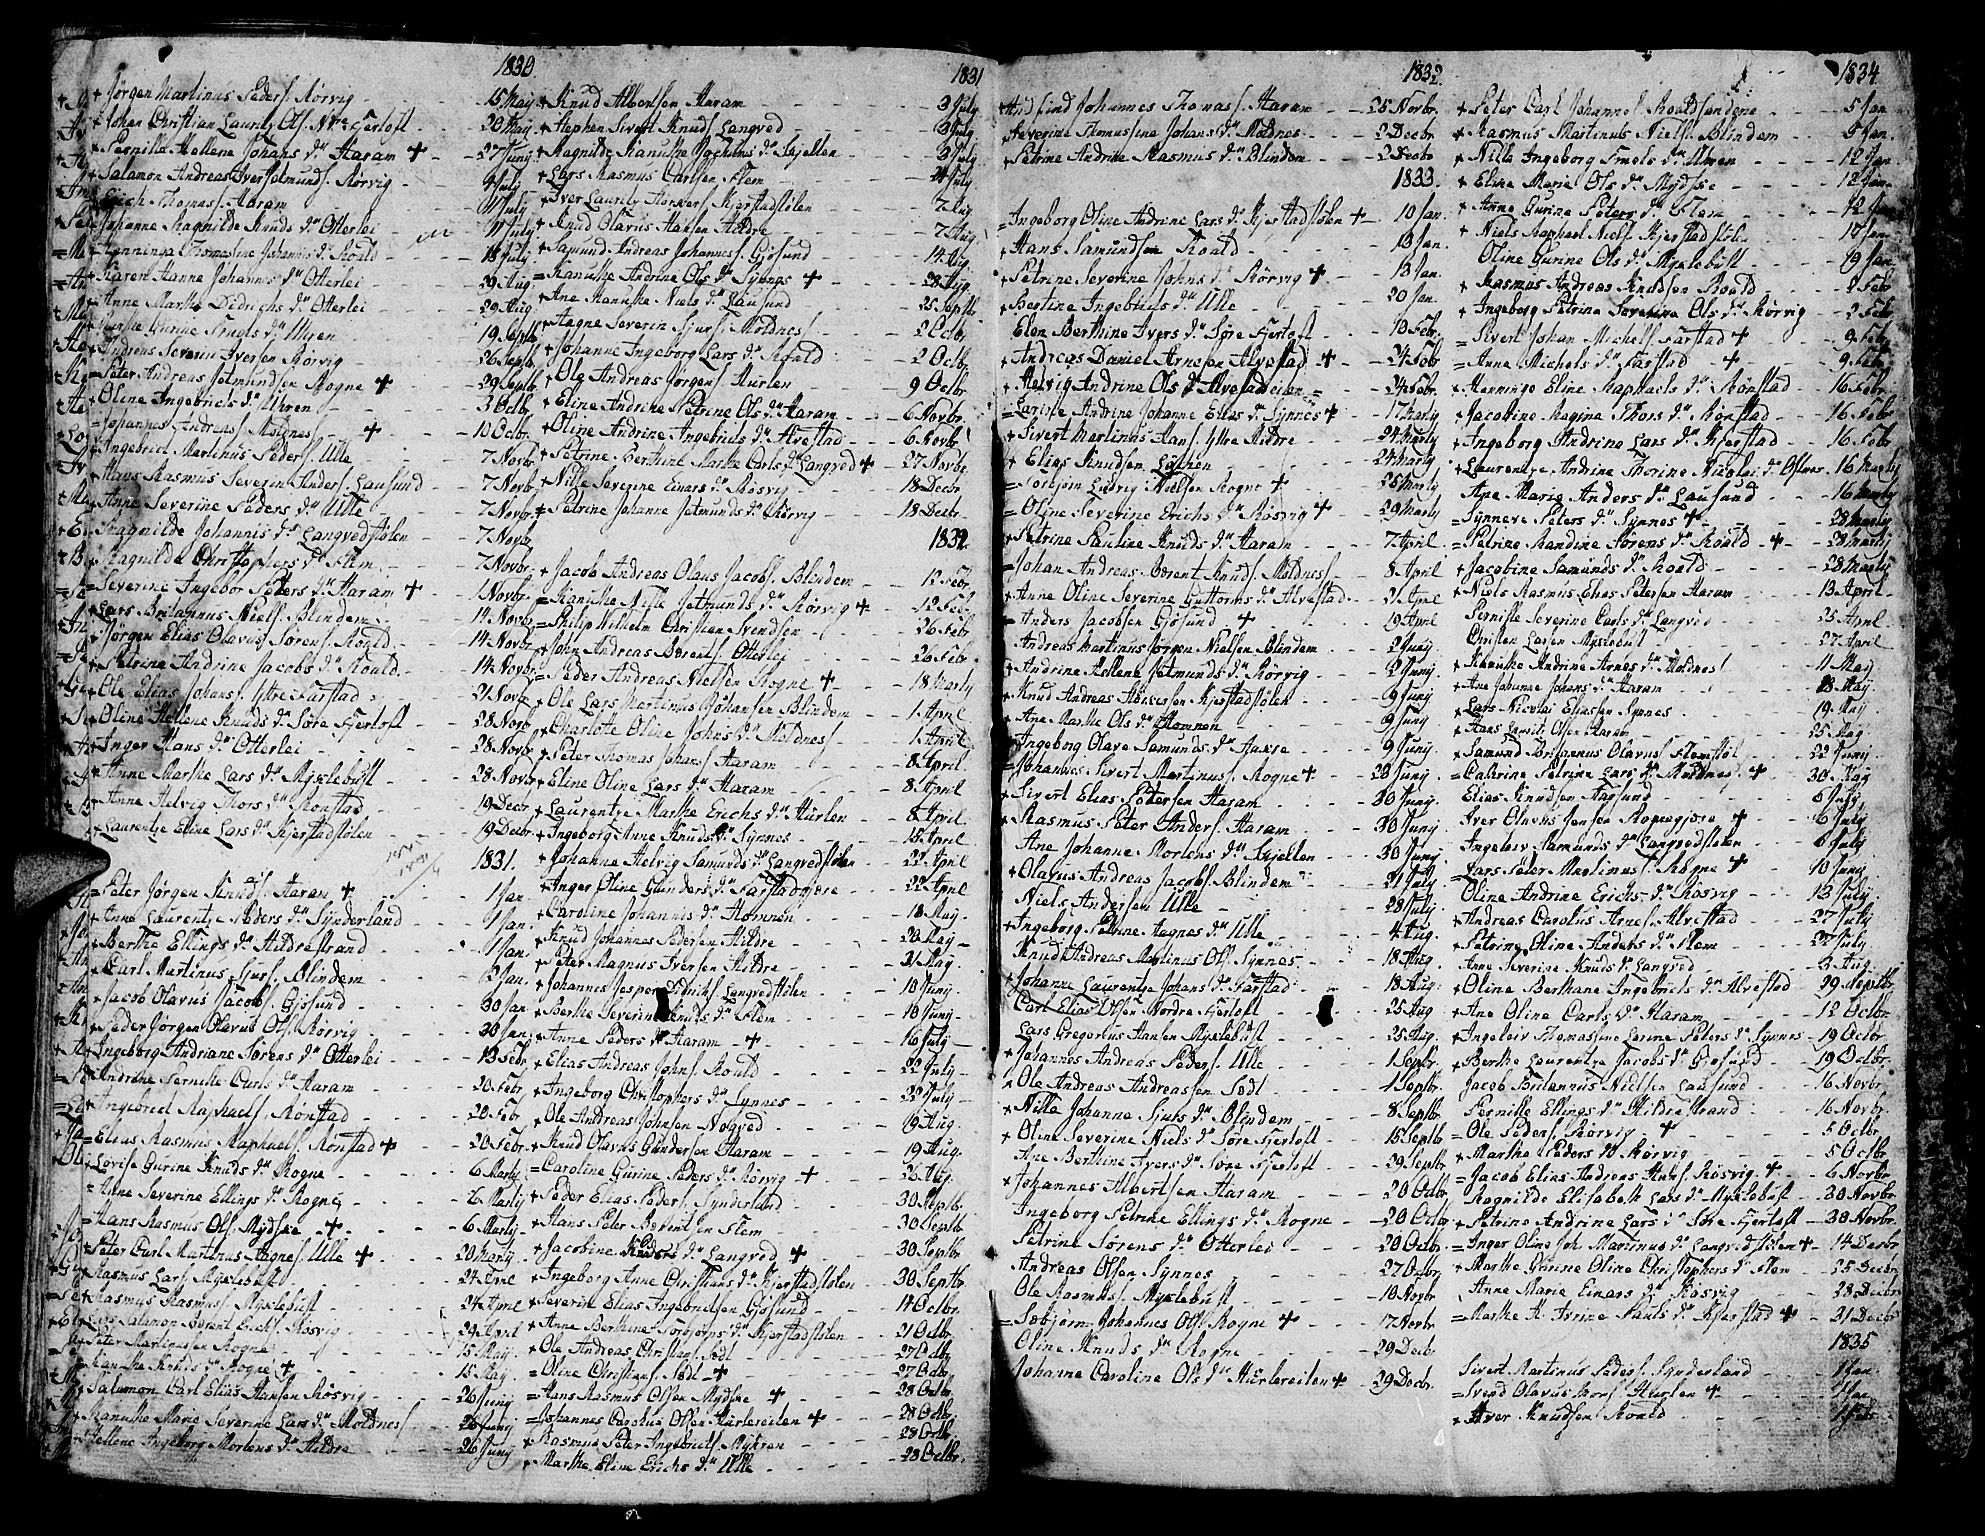 1830
+ Jørgen Martinus Peders. Rørvig - 15 May
+ Johan Christian Lauritz Ols. Nre Fjertoft - 20 May
+ Pernille Hellene Johans dr Haram + - 27 Juny
+ Salamon Andreas Iver Jetmunds. Rørvig - 4 July
Erich Thomas. Haram - 11 July
Johanne Ragnilde Knuds dr Otterlei - 11 July
Henninga Thomasine Johannis dr Roald - 18 July
Karen Hanne Johannes dr Otterlei - 29 Aug
Anne Marthe Didrichs dr Otterlei - 29 Aug
Gurine Truels dr Uhren - 19 Septb
Andreas Severin Iversen Rørvig - 26 Septb
= Peter Andreas Jetmundsen Rogne + - 29 Septb
+ Oline Ingebrigts dr Uhren - 3 Octbr
= Johannes Andreas Moldnes + - 10 Octbr
Ingebrict Martinus Peders. Ulle - 7 Novbr
+ Hans Rasmus Severin Anders. Lausund - 7 Novbr
+ Anne Severine Peders dr Ulle - 7 Novbr
Ragnilde Johannis dr Langvedstølen - 7 Novbr
+ Ragnilde Christophers dr Flem - 7 Novbr
= Severine Ingebor Peters dr Haram + - 1 Novbr
Lars Britannus Niels. Blindem - 14 Novbr
+ Jørgen Elias Olavus Sørens. Roald - 14 Novbr
+ Petrine Andrine Jacobs dr Roald - 14 Novbr
+ Ole Elias Johans. Ytre Farstad - 21 Novbr
+ Oline Hellene Knuds dr Søre Fjertoft - 28 Novbr
+ Inger Hans dr Otterlei - 28 Novbr
+ Anne Marthe Lars dr Myklebust - 28 Novbr
+ Anne Helvig Thors dr Rønstad - 19 Decbr
+ Laurentze Eline Lars dr Kjerstadstølen - 19 Decbr
1831.
= Peter Jørgen Knuds. Haram + - 1 Jan
+ Anne Laurentze Peders dr Synderland - 1 Jan.
+ Berthe Ellings dr Hildrestrand - 1 Jan.
+ Carl Martinus Sjurs. Blindem - 2 Jan
+ Jacob Olavus Jacobs. Gjøsund - 30 Jan
+ Peder Jørgen Olavus Ols. Rørvig - 30 Jan
+ Ingeborg Andriane Sørens dr Otterlei - 13 Febr
Andrine Pernille Carls dr Haram - 20 Febr
+ Ingebrect Raphaels. Rønstad - 20 Febr
= Elias Rasmus Raphaels. Rønstad + - 20 Febr
Lovise Gurine Knuds dr Rogne - 6 Marty
Anne Severine Ellings dr Rogne - 6 Marty
= Hans Rasmus Ols. Mydske + - 6 Marty
= Peter Carl Martinus Aagnes. Ulle + - 20 Marty
+ Rasmus Lars. Myklebust - 24 April
+ Rasmus Rasmus. Myklebust - 24 April
Salamon Berent Erichs. Røsvig - 24 April
Peter Martinusen Rogne - 15 May
Ranuthe Knuds dr Rogne + - 15 May
+ Salamon Carl Elias Hansen Røsvig - 26 Juny
+ Ranuthe Marie Severine Lars dr Moldnes - 26 Juny
Hellene Ingeborg Mortens dr Hildre - 26 Juny
1831
+ Knud Albertsen Haram - 3 July
+ Stephen Sivert Knuds. Langved - 3 July
+ Ragnilde Ranuthe Jochums dr Skjellen - 3 July
+ Lars Rasmus Carlsen Flem - 24 July
+ Iver Lauritz Torkers. Kjerstadstølen - 7 Aug
+ Knud Olavus Hansen Hildre - 7 Aug
+ Samund Andreas Johannes. Gjøsund - 14 Aug
= Ranuthe Andrine Ols dr Synnes + - 28 Aug.
+ Ane Ranuthe Niels dr Lausund - 25 Septb.
+ Aagne Severin Sjurs. Moldnes - 2 Octbr
+ Johanne Ingeborg Lars dr Roald - 2 Octbr
+ Ole Andreas Jørgens. Hurlen - 9 Octbr
+ Eline Andrine Petrine Ols dr Haram - 6 Novbr.
+ Oline Andrine Ingebrits dr Alvestad - 6 Novbr
+ Petrine Berthine Marthe Carls dr Langved + - 27 Novbr
+ Nille Severine Einars dr Røsvig - 18 Decbr
+ Petrine Johanne Jetmunds dr Rørvig - 18 Decbr.
1832.
+ Jacob Andreas Olaus Jacobs. Blindem - 12 Febr.
= Ranuthe Nille Jetmunds dr Rørvig + - 12 Feb.
= Philip Wilhelm Christian Svendsen - 26 Febr
+ John Andreas Berents. Otterlei - 26 Febr
= Peder Andreas Nielsen Rogne + - 18 Marty
+ Ole Lars Martinus Johansen Blindem - 1 April
+ Charlote Oline Johns dr Moldnes - 1 April
+ Peter Thomas Johans. Haram - 8 April.
+ Eline Oline Lars dr Haram - 8 April.
+ Laurentze Marthe Erichs dr Hurlen - 8 April
+ Ingeborg Anne Knuds dr Synnes - 15 April
+ Johanne Helvig Samunds dr Langvedstølen - 22 April
+ Inger Oline Gunders dr Farstadgjære - 22 April
+ Caroline Johannis dr Homnen - 18 May.
+ Knud Johannes Pedersen Hildre - 20 May
+ Peter Magnus Iversen Hildre - 31 May
+ Johannes Jesper Didriks. Langvedstølen - 10 Juny
+ Berthe Severine Knuds dr Flem - 10 Juny
+ Anne Peders dr Haram + - 16 July
+ Elias Andreas Johns. Roald - 22 July
+ Ingeborg Christophers dr Synnes - 29 July
+ Ole Andreas Johnsen Nogved - 19 Aug.
+ Knud Olavus Gundersen Haram - 19 Aug.
= Caroline Gurine Peders dr Rørvig + - 26 Aug.
+ Peder Elias Peders. Synderland - 30 Septb.
+ Hans Peter Berentsen Flem - 30 Septb
+ Jacobine Knuds dr Langved + - 30 Septbr
+ Ingeborg Anne Christians dr Kjerstadstølen - 30 Septbr
+ Severin Elias Ingebrictsen Gjøsund - 14 Octbr.
+ Anne Berthine Torbjørns dr Kjerstadstølen - 21 Octbr.
+ Ole Andreas Christians. Sødt - 27 Octbr
= Oline Christians. Sødt + - 27 Octbr
= Hans Rasmus Olsen Mydske + - 28 Octbr
= Johannes Carolus Olsen Hurlereiten + - 28 Octbr.
+ Rasmus Peter Ingebricts. Myhren - 28 Octbr.
+ Marthe Eline Erichs dr Ulle - 28 Octbr.
1832.
Johannes Thomas. Haram - 25 Novbr.
Severine Thomasine Johans dr Moldnes - 2 Decbr.
+ Petrine Andrine Rasmus dr Blindem - 2 Decbr
1833.
Ingeborg Oline Andrine Lars dr Kjerstadstølen + - 10 Jan.
+ Hans Samundsen Roald - 13 Jan.
+ Petrine Severine Johns dr Rørvig + - 13 Jan.
+ Bertine Ingebricts dr Ulle - 20 Jan.
Elen Berthine Ivers dr Søre Fjertoft - 13 Febr.
+ Andreas Daniel Arnesen Alvestad + - 24 Febr
+ Helvig Andrine Ols dr Alvestadeien - 24 Febr.
= Larisse Andrine Johanne Elias dr Synnes + - 17 Marty
+ Sivert Martinus Hans. Ytre Hildre - 24 Marty.
+ Elias Knudsen Løthen - 24 Marty
= Torbjørn Ludvig Nielsen Rogne + - 25 Marty
= Oline Severine Erichs dr Røsvig + - 29 Marty
+ Petrine Pauline Knuds dr Haram - 7 April
= Johan Andreas Berent Knuds. Moldnes - 8 April
+ Anne Oline Severine Guttorms dr Alvestad - 21 April
+ Anders Jacobsen Gjøsund + - 19 April
Andreas Martinus Jørgen Nielsen Blindem - 2 Juny
+ Andrine Hellene Jetmunds dr Rørvig - 2 Juny.
+ Knud Andreas Torkersen Kjerstadstølen - 9 Juny
+ Ane Marthe Ols dr Homnen - 9 Juny
+ Ingeborg Olave Samunds dr Aakre - 9 Juny
= Johannes Sivert Martinus. Rogne + - 20 Juny.
+ Sivert Elias Pedersen Haram - 30 Juny.
+ Rasmus Peter Anders. Haram - 30 Juny.
Ane Johanne Mortens dr Skjellen - 30 Juny.
+ Olavus Andreas Jacobs. Blindem - 21 July
Niels Andersen Ulle - 28 July.
+ Ingeborg Petrine Aagnes dr Ulle - 4 Aug.
Knud Andreas Martinus Ols. Synnes - 18 Aug.
+ Johanne Laurentze Johans dr Farstad - 18 Aug.
Carl Elias Olsen Nordre Fjertoft - 25 Aug
Lars Gregorius Hansen Myklebust - 25 Aug.
+ Johannes Andreas Peders. Ulle - 1 Septbr.
+ Ole Andreas Andreasen Sødt - 1 Septbr.
+ Nille Johanne Sjurs dr Blindem - 8 Septbr.
+ Oline Severine Niels dr Søre Fjertoft - 15 Septbr
Ane Berthine Ivers dr Søre Fjertoft - 29 Septbr.
+ Johannes Albertsen Haram - 20 Octbr.
Ingeborg Petrine Ellings dr Rogne - 20 Octbr
Petrine Sørens dr Otterlei - 20 Octbr.
Andreas Olsen Synnes - 27 Octbr.
Ole Rasmus. Myklebust - 10 Novbr.
= Sæbjørn Johannes Ols. Rogne + - 17 Novbr.
Oline Knuds dr Rogne - 29 Decb
Johanne Caroline Ols dr Hurlereiten + - 29 Decbr.
1834
+ Peter Carl Johannes. Roaldsandene - 5 Jan
+ Rasmus Martinus Niels. Blindem - 5 Jan.
+ Nille Ingeborg Truels dr Uhren - 12 Jan
+ Eline Marie Ols dr Mydske - 12 Jan.
+ Anne Gurine Peters dr Flem - 12 Jan
+ Niels Raphael Niels. Kjerstadstøl - 17 Jan
Oline Gurine Ols dr Myklebust - 19 Jan
+ Rasmus Andreas Knudsen Roald - 2 Febr
+ Ingeborg Petrine Severine Ols dr Rørvig - 2 Febr.
= Sivert Johan Michels. Farstad + - 9 Febr
= Anne Michels dr Farstad + - 9 Febr.
+ Henninge Eline Raphaels dr Rønstad - 16 Febr.
+ Jacobine Ragina Thors dr Rønstad - 16 Febr
+ Ingeborg Andrine Lars dr Kjerstad - 16 Febr
+ Laurentze Andrine Thorine Nicolai dr Østnes - 16 Marty
Ane Marie Anders dr Lausund - 16 Marty
= Synneve Peters dr Synnes + - 28 Marty
= Petrine Randine Sørens dr Roald + - 28 Marty
+ Jacobine Samunds dr Roald - 28 Marty
+ Niels Rasmus Elias Petersen Haram - 13 April.
Pernille Severine Carls dr Langved - 25 April
Christen Larsen Myklebust - 27 April
+ Ranuthe Andrine Arnes dr Moldnes - 11 May
+ Ane Johanne Johans dr Haram - 18 May
+ Lars Nicolai Eliasen Synnes - 19 May
+ Hans Lauritz Olsen Haram - 25 May
+ Samund Olavus Flemstøl - 22 Juny
= Catrine Petrine Lars dr Moldnes + - 30 May
Elias Knudsen Aasund - 6 July
+ Iver Olavus Jensen Rognegjære + - 6 July
+ Ingeleiv Samunds dr Langvedstølen - 6 July
= Lars Peter Martinus. Rogne + - 10 Juny
Oline Andrine Erichs dr Røsvig - 13 July
+ Andreas Carolus Arnes. Alvestad - 27 July
+ Petrine Oline Anders dr Flem - 27 July
Anne Severine Knuds dr Langved - 3 Aug
+ Oline Berthane Ingebricts dr Alvestad - 29 Septbr.
+ Ane Oline Carls dr Haram - 12 Octbr
+ Ingeleiv Thomasine Larine Peters dr Synnes - 19 Octbr.
+ Berthe Laurentze Jacobs dr Gjøsund - 19 Octbr.
Jacob Britannus Nielsen Lausund - 16 Novbr.
Pernille Ellings dr Hildrestrand - 16 Novbr.
= Ole Peders. Rørvig + - 5 Octbr
+ Marthe Peders dr Rørvig - 5 Octbr.
= Jacob Elias Andreas Hans. Røsvig + - 6 Novbr
Ragnilde Elisabeth Lars dr Myklebust - 30 Novbr.
+ Petrine Andrine Lars dr Søre Fjertoft - 30 Novbr.
= Inger Oline Joh. Martinus dr Langvedstølen + - 14 Decbr
+ Marthe Gurine Oline Christophers dr Flem - 25 Decbr
Anne Marie Einars dr Røsvig - 28 Decbr
= Marthe Pauls dr Kjerstad + - 31 Decbr
1835
Sivert Martinus Peders. Synderland - 1 Jan
= Svend Olavus Hurlen + - 1 Jan
+ Iver Knudsen Roald - 1 Feb